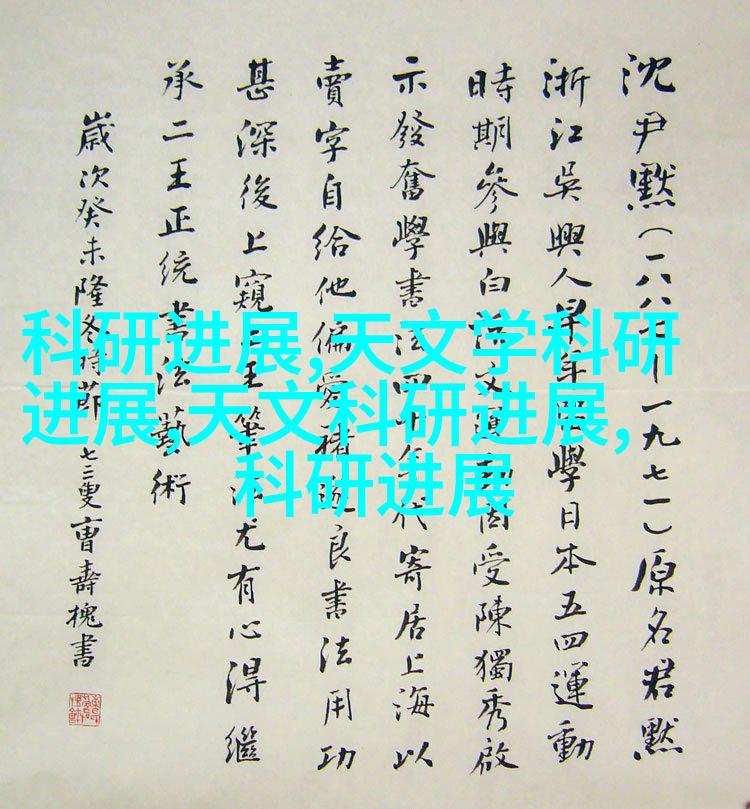 沈尹默(一八八—一九七一)原名君默
浙江吳興人早年學日本五四運動
時期參與白話文運動因受陳獨秀啟
示發奮學書法四十年代寄居上海以
賣字自給他偏愛褚遂良書法用功
甚深後上窺二王筆法尤有心得繼
承二王正统書法藝術
歲次癸未隆冬時節七三叟曹壽槐書
科研进展,天文学科研
进展,天文科研进展,
科研进展